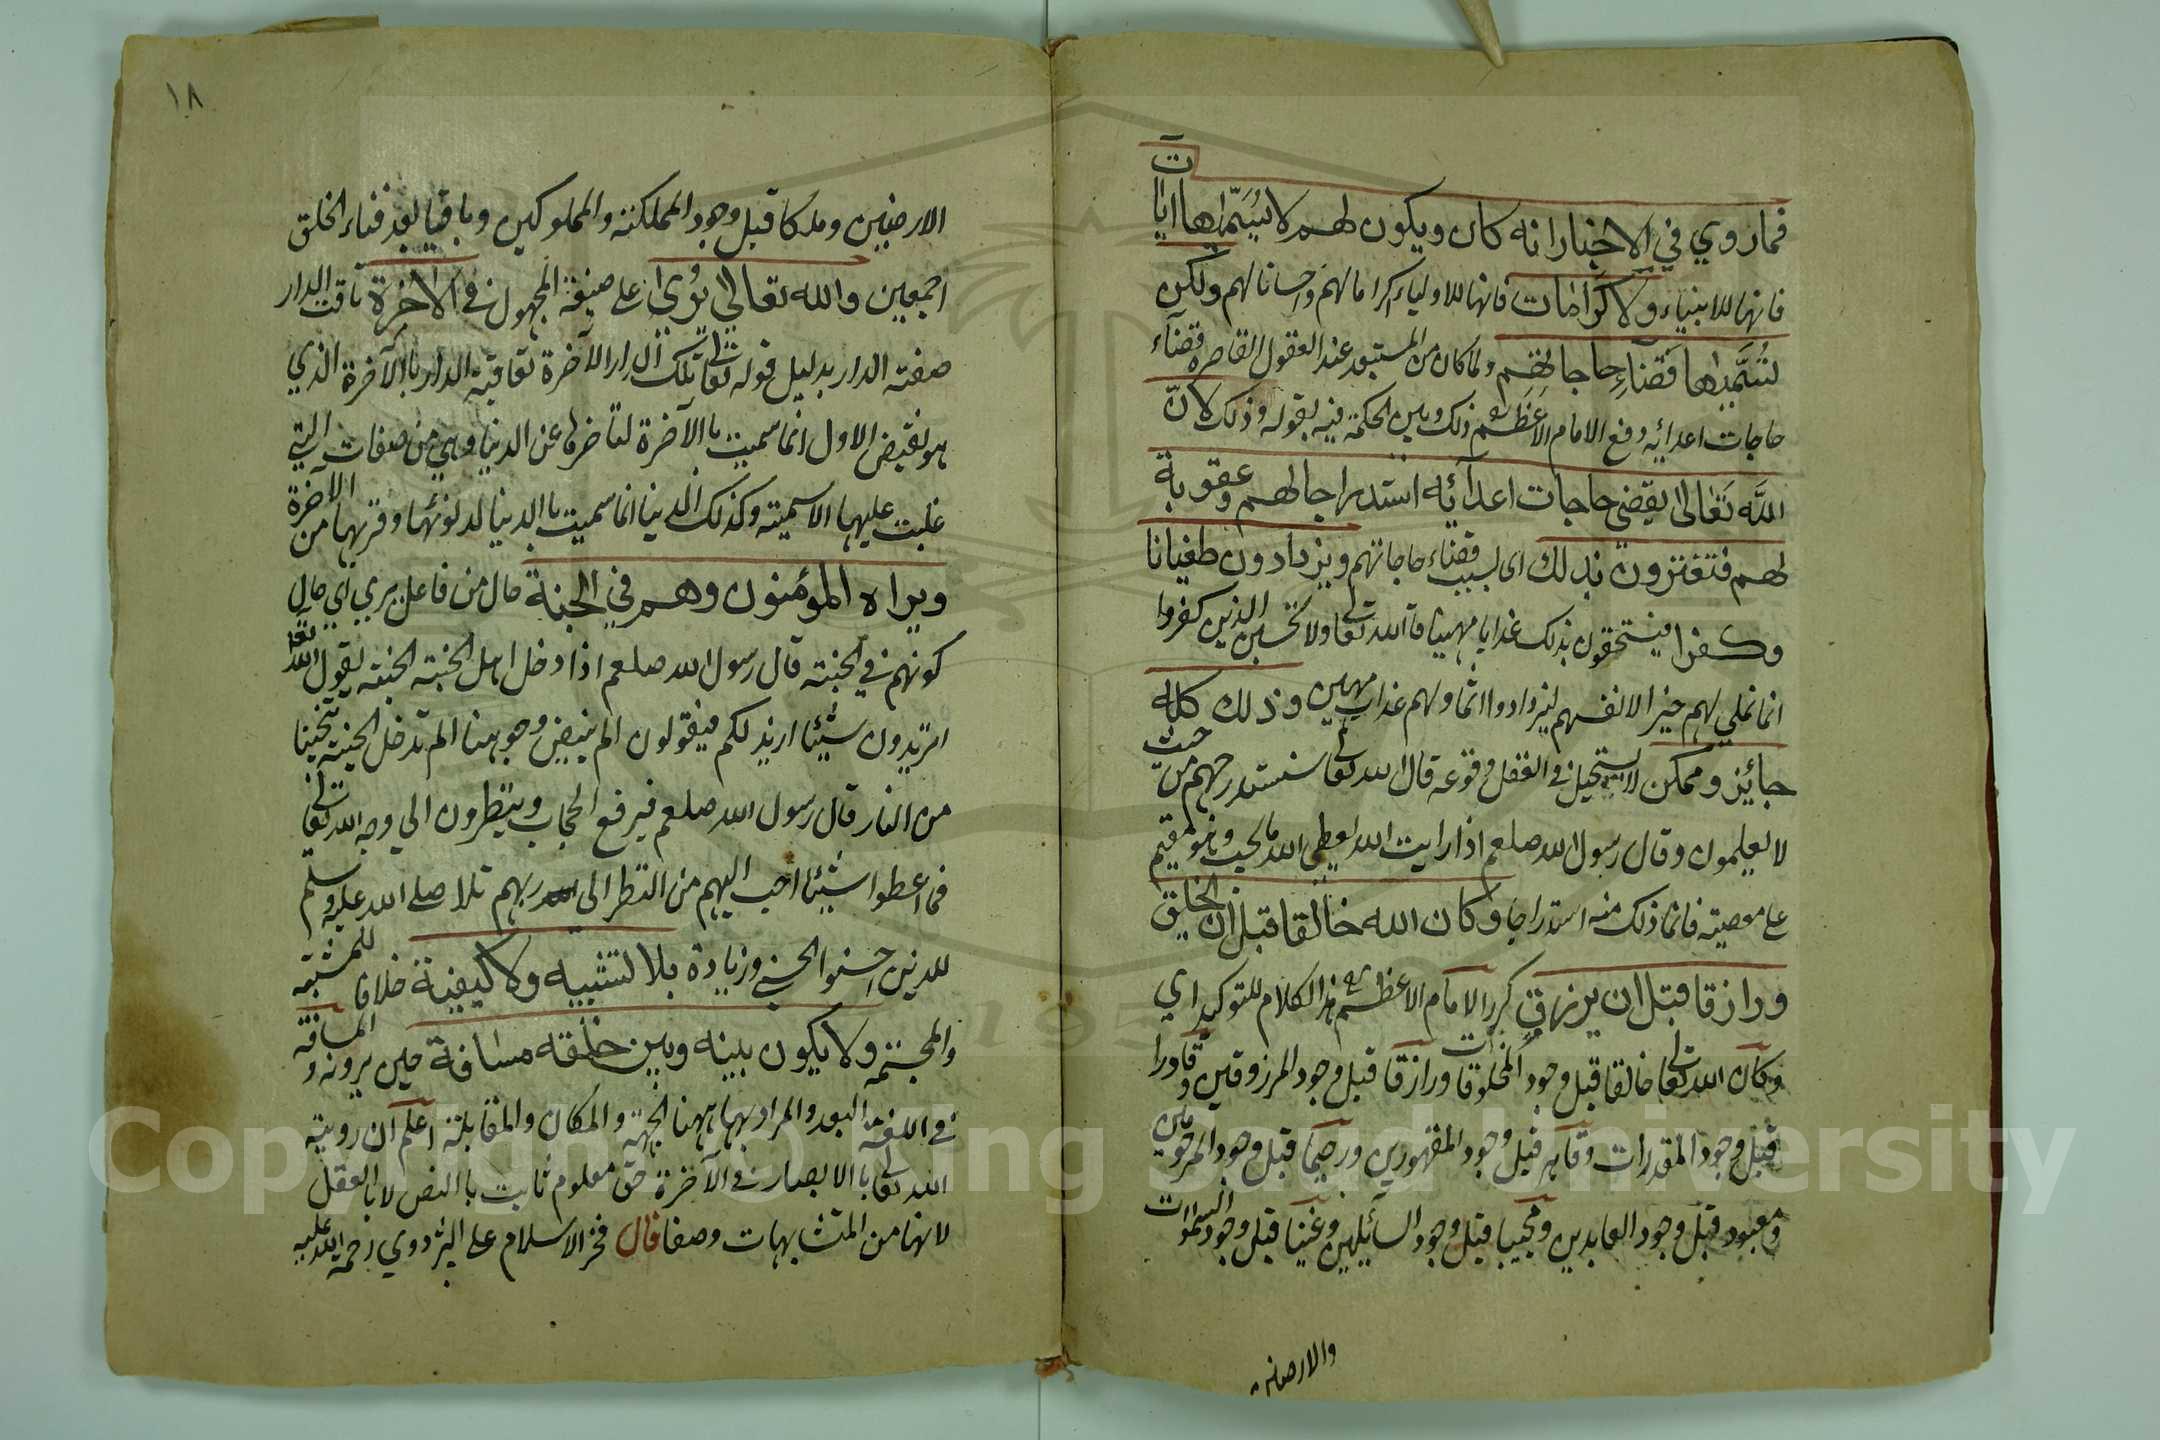 فماروي في الاخبار انه كان ويكون لهم لا نسميها ايات
فانها للانبياء ولا كرامات فانها للاولياء اكراما لهم واحسانا لهم ولكن
نسميها قضاء حاجاتهم ولما كان من المستبعد عند العقول القاصرة قضاء
حاجات اعدائه دفع الامام الاعظم ذلك وبين الحكمة فيه بقوله وذلك لان
الله تعالى يقضي حاجات اعدآئه استدراجا لهم وعقوبة
لهم فتغترون بذلك اى بسبب قضاء حاجاتهم ويزدادون طغيانا
وكفرا فيستحقون بذلك عذابا مهينا قال الله تعالى ولا تحسبن الذين كفروا
انما نملي لهم خير الانفسهم ليزدادوا اثما ولهم عذاب مهين وذلك كله
جائز وممكن لا يستحيل في العقل وقوعه قال الله تعالى سنستدرجهم من حيث
لا يعلمون وقال رسول الله صلعم اذا رايت الله يعطي الله ما يحب وهو مقيم
على معصيته فانما ذلك منه استدراجا وكان الله خالقا قبل ان يخلق
ورازقا قبل ان يرزق كرر الامام الاعظم هذا الكلام للتوكيد اي
وكان الله تعالى خالقا قبل وجود المخلوقات ورازقا قبل وجود المرزوقين وقادرا
قبل وجود المقدرات وقاهر قبل وجود المقهورين ورحيما قبل وجود المرحومين
ومعبود قبل وجود العابدين ومجيبا قبل وجود السآئلين وغنيا قبل وجود السموات
والارضين
١٨
الارضيين وملكا قبل وجود المملكة والمملوكين وباقيا بعد فناء الخلق
اجمعين والله تعالى يرى على صيغة المجهول في الآخرة تآقت الدار
صفته الدار بدليل قوله تعالى تلك الدار الآخرة تعاقبة الدار باالآخرة الذي
هو نقيض الاول انما سميت باالآخرة لتأخرها عن الدنيا وهي من صفات التي
غلبت عليها الاسمية وكذلك الدنيا انما سميت باالدنيا لدنوئها وقربها من الآخرة
ويراه المؤمنون وهم في الجنة حال من فاعل يري اي حال
كونهم في الجنة قال رسول الله صلعم اذا دخل اهل الجنة الجنة يقول الله تعالى
اتريدون شيئا ازيدلكم فيقولون الم يبيض وجوهنا الم تدخل الجنة تنجينا
من النار قال رسول الله صلعم فيرفع الحجاب وينظرون الي وجه الله تعالى
فما اعطوا شيئا احب اليهم من النظر الى ربهم تلا صلى الله عليه وسلم
للذين احسنوا الحسنى وزيادة بلا تشبيه ولا كيفية خلافا للمشبهة
والمجسمة ولا يكون بينه وبين خلقه مسافة حين يرونه والمسافة
في اللغة البعد والمراد بهما ههنا الجهة والمكان والمقابلة اعلم ان روية
الله تعالى باالابصار في الآخرة حق معلوم ثابت باالنص لا باالعقل
لانها من المتشابهات وصفا قال فخر الاسلام على البزدوي رحمة الله عليه